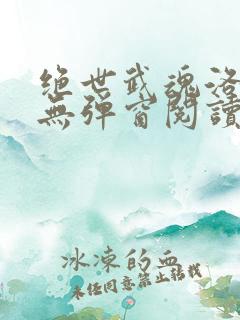 绝世武魂洛
無彈窗閱讀
冰凍的血
未经同意禁止转载